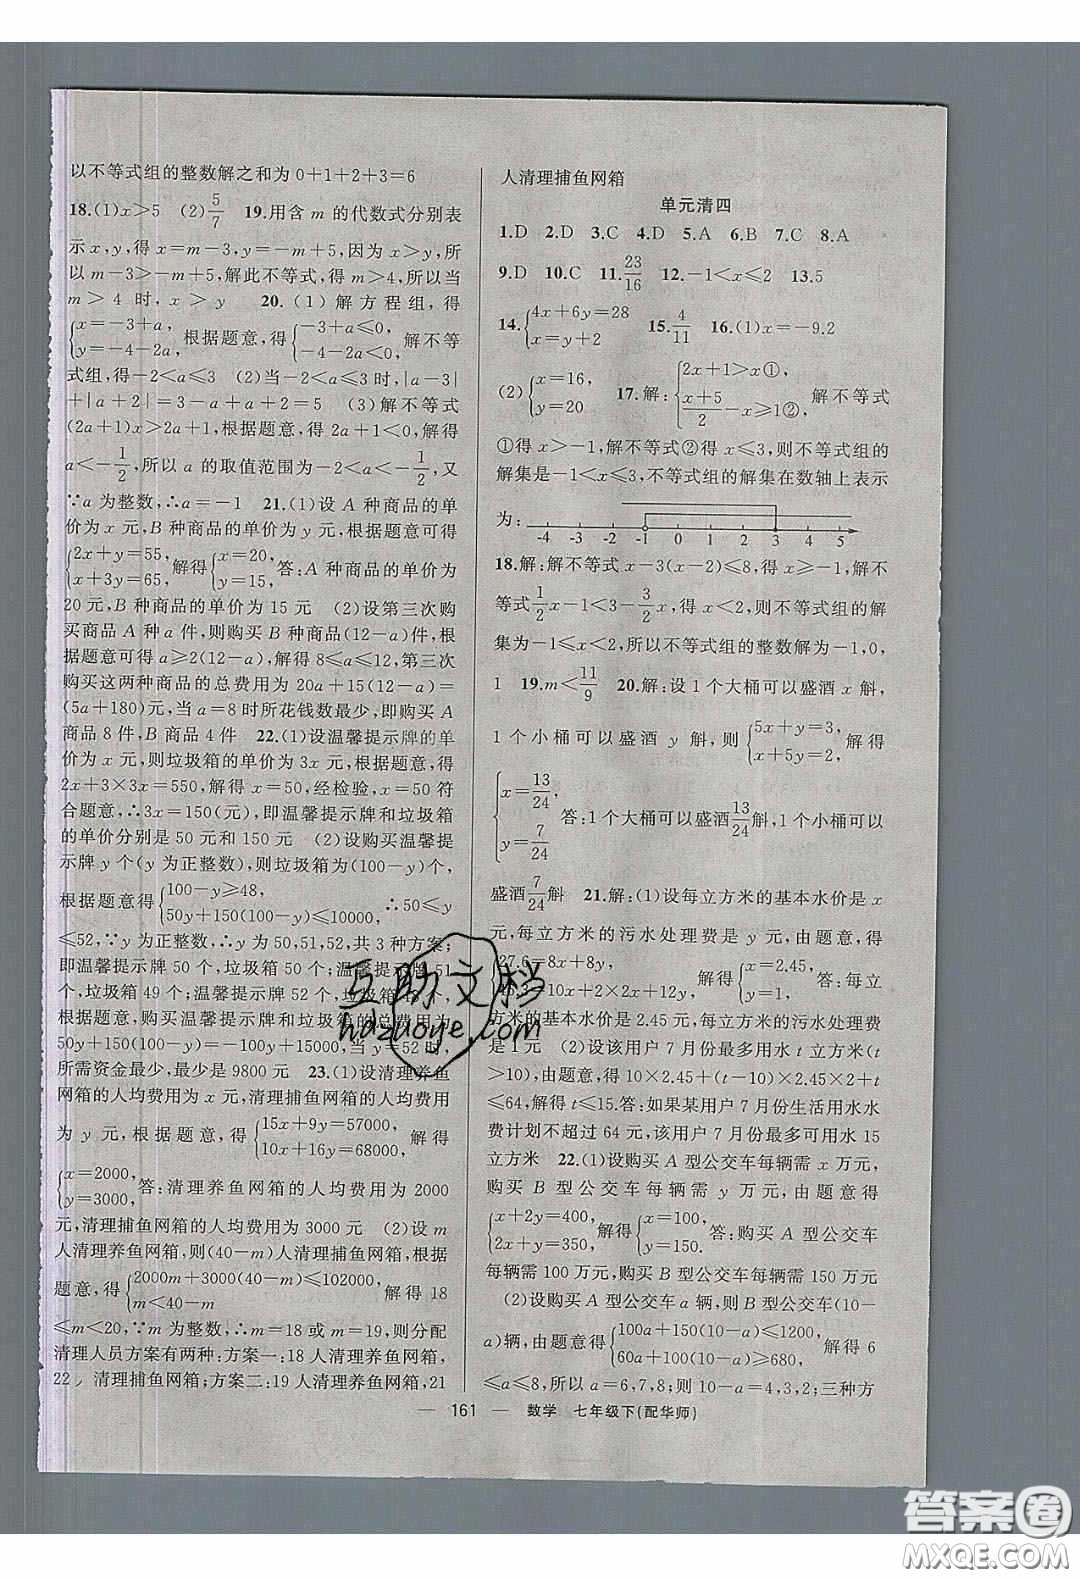 以不等式组的整数解之和为 0+1+2+3=6
18.(1)x>5　(2)5/7　19.用含 m 的代数式分别表
示 x,y,得 x=m-3,y=-m+5,因为 x>y,所
以 m-3>-m+5,解此不等式,得 m>4,所以当
m>4 时,x>y　20.(1)解方程组,得
{x=-3+a, y=-4-2a, 根据题意,得{-3+a≤0, -4-2a<0, 解不等
式组,得-2<a≤3　(2)当-2<a≤3 时,|a-3|
+|a+2|=3-a+a+2=5　(3)解不等式
(2a+1)x>2a+1,根据题意,得 2a+1<0,解得
a<-1/2,所以 a 的取值范围为-2<a<-1/2,又
∵a 为整数,∴a=-1　21.(1)设 A 种商品的单
价为 x 元,B 种商品的单价为 y 元,根据题意可得
{2x+y=55, x+3y=65, 解得{x=20, y=15, 答:A 种商品的单价为
20 元,B 种商品的单价为 15 元　(2)设第三次购
买商品 A 种 a 件,则购买 B 种商品(12-a)件,根
据题意可得 a≥2(12-a),解得 8≤a≤12,第三次
购买这两种商品的总费用为 20a+15(12-a)=
(5a+180)元,当 a=8 时所花钱数最少,即购买 A
商品 8 件,B 商品 4 件　22.(1)设温馨提示牌的单
价为 x 元,则垃圾箱的单价为 3x 元,根据题意,得
2x+3×3x=550,解得 x=50,经检验,x=50 符
合题意,∴3x=150(元),即温馨提示牌和垃圾箱
的单价分别是 50 元和 150 元　(2)设购买温馨提
示牌 y 个(y 为正整数),则垃圾箱为(100-y)个,
根据题意得{100-y≥48, 50y+150(100-y)≤10000, ∴50≤y
≤52,∵y 为正整数,∴y 为 50,51,52,共 3 种方案;
即温馨提示牌 50 个,垃圾箱 50 个;温馨提示牌 51
个,垃圾箱 49 个;温馨提示牌 52 个,垃圾箱 48 个,
根据题意,购买温馨提示牌和垃圾箱的总费用为
50y+150(100-y)=-100y+15000,当 y=52 时,
所需资金最少,最少是 9800 元　23.(1)设清理养鱼
网箱的人均费用为 x 元,清理捕鱼网箱的人均费用
为 y 元,根据题意,得{15x+9y=57000, 10x+16y=68000, 解得
{x=2000, y=3000, 答:清理养鱼网箱的人均费用为 2000
元,清理捕鱼网箱的人均费用为 3000 元　(2)设 m
人清理养鱼网箱,则(40-m)人清理捕鱼网箱,根据
题意,得{2000m+3000(40-m)≤102000, m<40-m 解得 18
≤m<20,∵m 为整数,∴m=18 或 m=19,则分配
清理人员方案有两种:方案一:18 人清理养鱼网箱,
22人清理捕鱼网箱;方案二:19 人清理养鱼网箱,21
人清理捕鱼网箱
单元清四
1.D　2.D　3.C　4.D　5.A　6.B　7.C　8.A
9.D　10.C　11.23/16　12.-1<x≤2　13.5
14.{4x+6y=28 x=y+2　15.4/11　16.(1)x=-9.2
(2){x=16, y=20　17.解:{2x+1>x①, (x+5)/2-x≥1②, 解不等式
①得 x>-1,解不等式②得 x≤3,则不等式组的
解集是-1<x≤3,不等式组的解集在数轴上表示
为: -4 -3 -2 -1 0 1 2 3 4 5
18.解:解不等式 x-3(x-2)≤8,得 x≥-1,解不
等式 1/2x-1<3-3/2x,得 x<2,则不等式组的解
集为-1≤x<2,所以不等式组的整数解为-1,0,
1　19.m<11/9　20.解:设 1 个大桶可以盛酒 x 斛,
1 个小桶可以盛酒 y 斛,则{5x+y=3, x+5y=2, 解得
{x=13/24, y=7/24 答:1 个大桶可以盛酒13/24斛,1 个小桶可以
盛酒7/24斛　21.解:(1)设每立方米的基本水价是 x
元,每立方米的污水处理费是 y 元,由题意,可得
{27.6=8x+8y, 46.3=10x+2×2x+12y, 解得{x=2.45, y=1, 答:每立
方米的基本水价是 2.45 元,每立方米的污水处理费
是 1 元　(2)设该用户 7 月份最多用水 t 立方米(t
>10),由题意,得 10×2.45+(t-10)×2×2.45+t
≤64,解得 t≤15.答:如果某用户 7 月份生活用水水
费计划不超过 64 元,该用户 7 月份最多可用水 15
立方米　22.(1)设购买 A 型公交车每辆需 x 万元,
购买 B 型公交车每辆需 y 万元,由题意得
{x+2y=400, 2x+y=350, 解得{x=100, y=150. 答:购买 A 型公交车
每辆需 100 万元,购买 B 型公交车每辆需 150 万元
(2)设购买 A 型公交车 a 辆,则 B 型公交车(10-
a)辆,由题意得{100a+150(10-a)≤1200, 60a+100(10-a)≥680, 解得 6
≤a≤8,所以 a=6,7,8;则 10-a=4,3,2;三种方
— 161 —　数学　七年级下(配华师)
互助文档
hdzuoye.com
答案圈
MXQE.COM